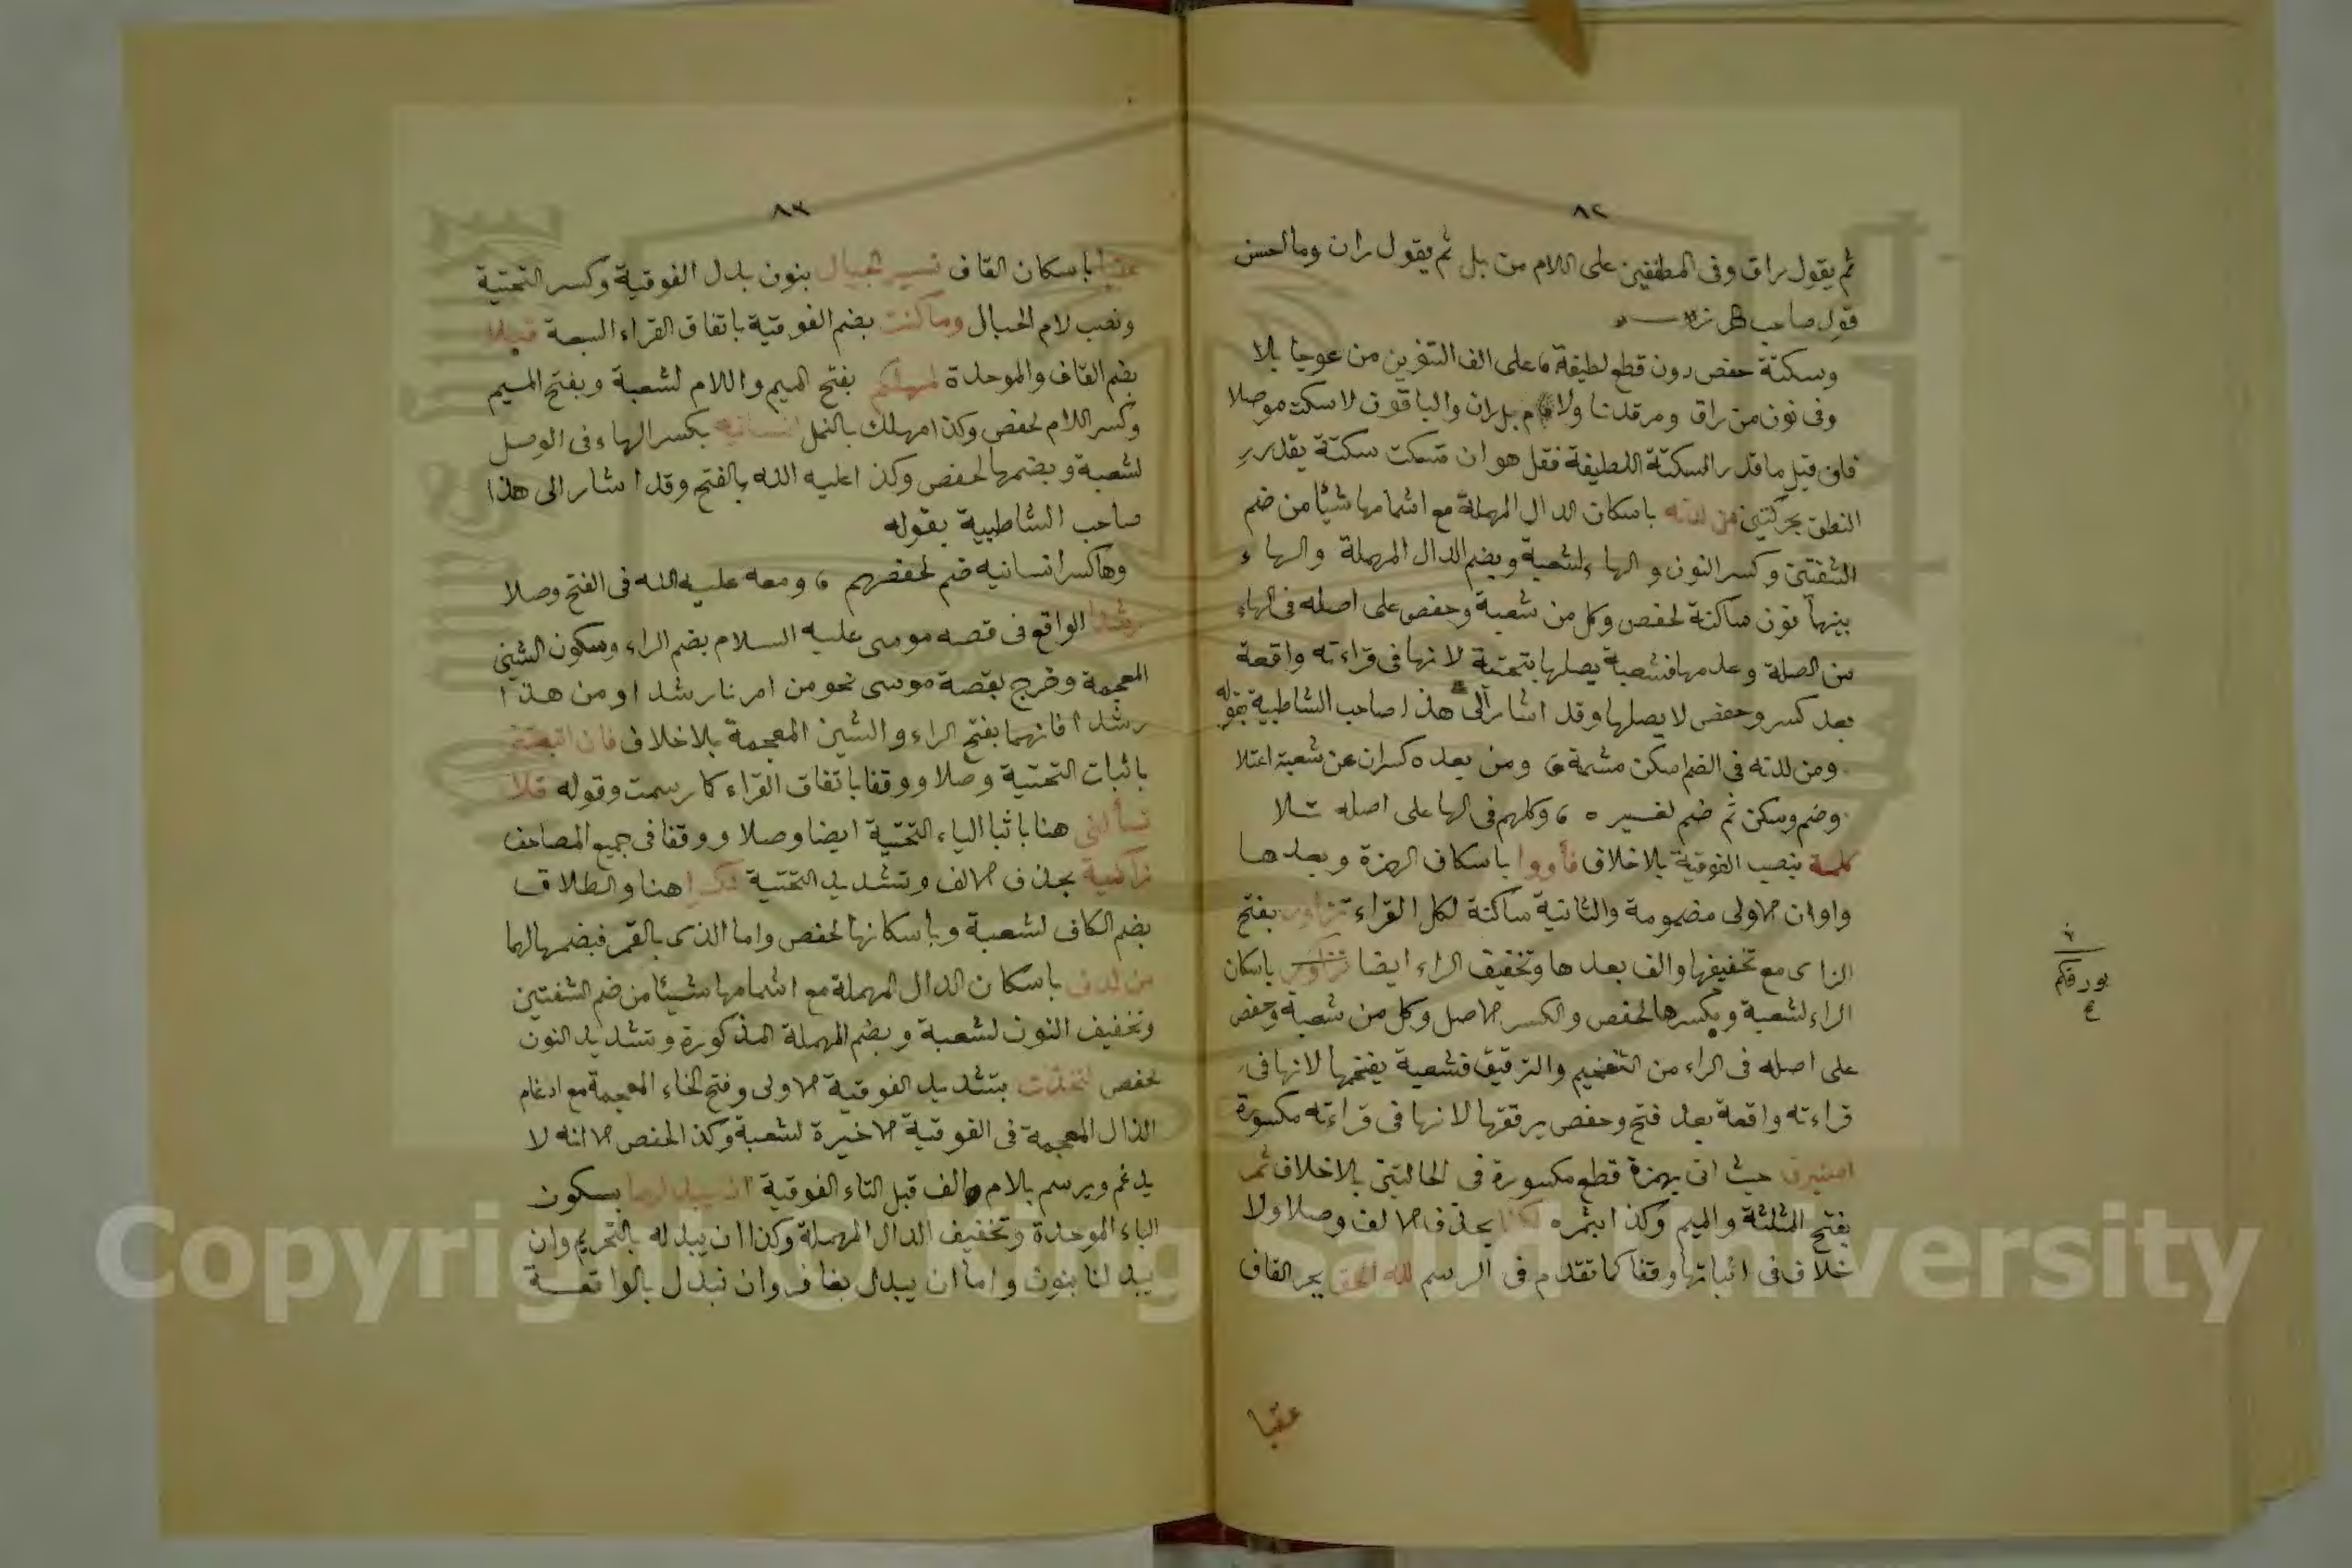 ٨٢
ثم يقول راق وفى المطففين على اللام من بل ثم يقول ران وما احسن
قول صاحب
وسكتة حفص دون قطع لطيفة ، على الف التنوين من عوجا بلا
وفى نون من راق ومرقدنا ولا م بل ران والباقون لا سكت موصلا
فان قيل ما قدر السكتة اللطيفة فقل هو ان تسكت سكتة يقدر
النطق بحركتين من لدنه باسكان الدال المهملة مع اشمامها شيأ من ضم
الشفتين وكسر النون والهاء لشعبة وبضم الدال المهملة والهاء
بينهما نون ساكنة لحفص وكل من شعبة وحفص على اصله فى الهاء
من الصلة وعدمها فشعبة يصلها بتحتية لانها فى قراءته واقعة
بعد كسر وحفص لا يصلها وقد اشار الى هذا صاحب الشاطبية بقوله
ومن لدنه فى الضم اسكن مشمه ، ومن بعده كسران عن شعبة اعتلا
وضم وسكن ثم ضم لغيره ، وكلهم فى الها على اصله تلا
كلمة بنصب الفوقية بلا خلاف فأووا باسكان الهمزة وبعدها
واوان الاولى مضمومة والثانية ساكنة لكل القراء تزاور بفتح
الزاى مع تخفيفها والف بعدها وتخفيف الراء ايضا باسكان
الراء لشعبة وبكسرها لحفص والكسر الاصل وكل من شعبة وحفص
على اصله فى الراء من التفخيم والترقيق فشعبة يفخمها لانها فى
قراءته واقعة بعد فتح وحفص يرققها لانها فى قراءته مكسورة
حيث اتى بهمزة قطع مكسورة فى الحالتين بلا خلاف ثمر
بفتح المثلثة والميم وكذا بثمره لكنا بحذف الالف وصلا ولا
خلاف فى اثباتها وقفا كما تقدم فى الرسم لله الحق بجر القاف
عقبا
بورقكم
٨٣
عقبا باسكان القاف نسير الجبال بنون بدل الفوقية وكسر التحتية
ونصب لام الجبال وما كنت بضم الفوقية باتفاق القراء السبعة قبلا
بضم القاف والموحدة لمهلكهم بفتح الميم واللام لشعبة وبفتح الميم
وكسر اللام لحفص وكذا مهلك بالنمل انسانيه بكسر الهاء فى الوصل
لشعبة وبضمها لحفص وكذا عليه الله بالفتح وقد اشار الى هذا
صاحب الشاطبية بقوله
وها كسر انسانيه ضم لحفصهم ، ومعه عليه الله فى الفتح وصلا
رشدا الواقع فى قصه موسى عليه السلام بضم الراء وسكون الشين
المعجمة وخرج بقصة موسى نحو من امرنا رشدا ومن هذا
رشدا فانهما بفتح الراء والشين المعجمة بلا خلاف فان اتبعتنى
باثبات التحتية وصلا ووقفا باتفاق القراء كما رسمت وقوله فلا
تسألنى هنا باثبا الياء التحتية ايضا وصلا ووقفا فى جميع المصاحف
زاكية بحذف الالف وتشديد التحتية نكرا هنا والطلاق
بضم الكاف لشعبة وباسكانها لحفص واما الذى بالقمر فبضمها لهما
من لدنى باسكان الدال المهملة مع اشمامها شيأ من ضم الشفتين
وتخفيف النون لشعبة وبضم المهملة المذكورة وتشديد النون
لحفص لتخذت بتشديد الفوقية الاولى وفتح الخاء المعجمة مع ادغام
الذال المعجمة فى الفوقية الاخيرة لشعبة وكذا لحفص الا انه لا
يدغم ويرسم بلام والف قبل التاء الفوقية ان يبدلهما بسكون
الباء الموحدة وتخفيف الدال المهملة وكذا ان يبدله بالتحريم وان
يبدلنا بنون واما ان يبدل بغافر وان نبدل بالواقعة
Copyright © King Saud University